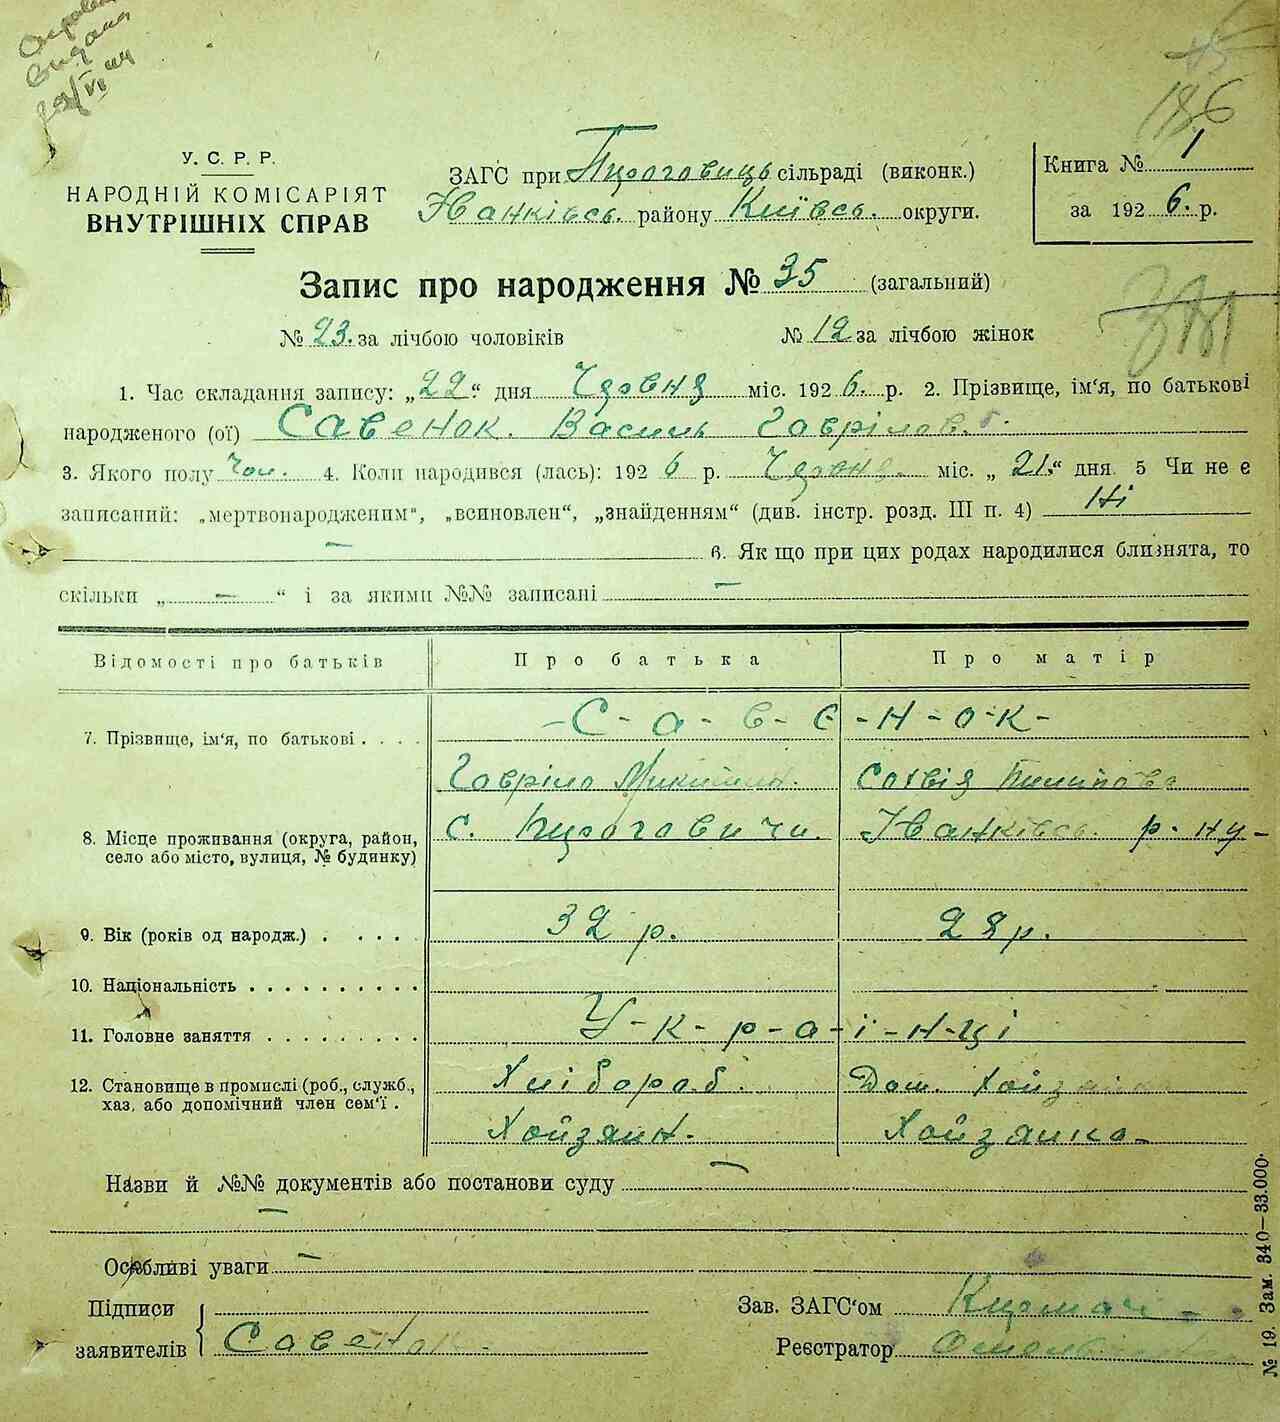 Видана
29/VI
186
У. С. Р. Р.
НАРОДНІЙ КОМІСАРІЯТ
ВНУТРІШНІХ СПРАВ
ЗАГС при Пироговиць сільраді (виконк.)
Іванківсь. району Київсь. округи.
Книга № 1
за 1926. р.
Запис про народження № 35 (загальний)
№ 23. за лічбою чоловіків
№ 12 за лічбою жінок
1. Час складання запису: „22“ дня Червня міс. 1926. р. 2. Прізвище, ім'я, по батькові
народженого (ої) Савенок. Василь Гаврілов.
3. Якого полу Чол. 4. Коли народився (лась): 1926 р. Червня. міс. „21.“ дня. 5 Чи не є
записаний: „мертвонародженим“, „всиновлен“, „знайденням“ (див. інстр. розд. III п. 4) Ні
— 6. Як що при цих родах народилися близнята, то
скільки „—“ і за якими №№ записані —
Відомості про батьків
Про батька
Про матір
7. Прізвище, ім'я, по батькові . . . .
-С-а-в-е-н-о-к-
Гавріло Микит
Софія Пилипова
8. Місце проживання (округа, район,
село або місто, вулиця, № будинку)
с. Пироговичи.
Іванківсь. р-ну-
9. Вік (років од народж.) . . . . .
32 р.
28 р.
10. Національність . . . . . . . . . .
11. Головне заняття . . . . . . . . .
У-к-р-а-ї-н-ці
12. Становище в промислі (роб., служб.,
хаз. або допомічний член сем'ї .
Хлібороб.
Дом. Хойзяйка
Хойзяин.
Хойзяика-
Назви й №№ документів або постанови суду —
—
Особливі уваги —
Підписи
заявителів
Савенок
Зав. ЗАГС'ом
Реєстратор
№ 19. Зам. 340—33.000.